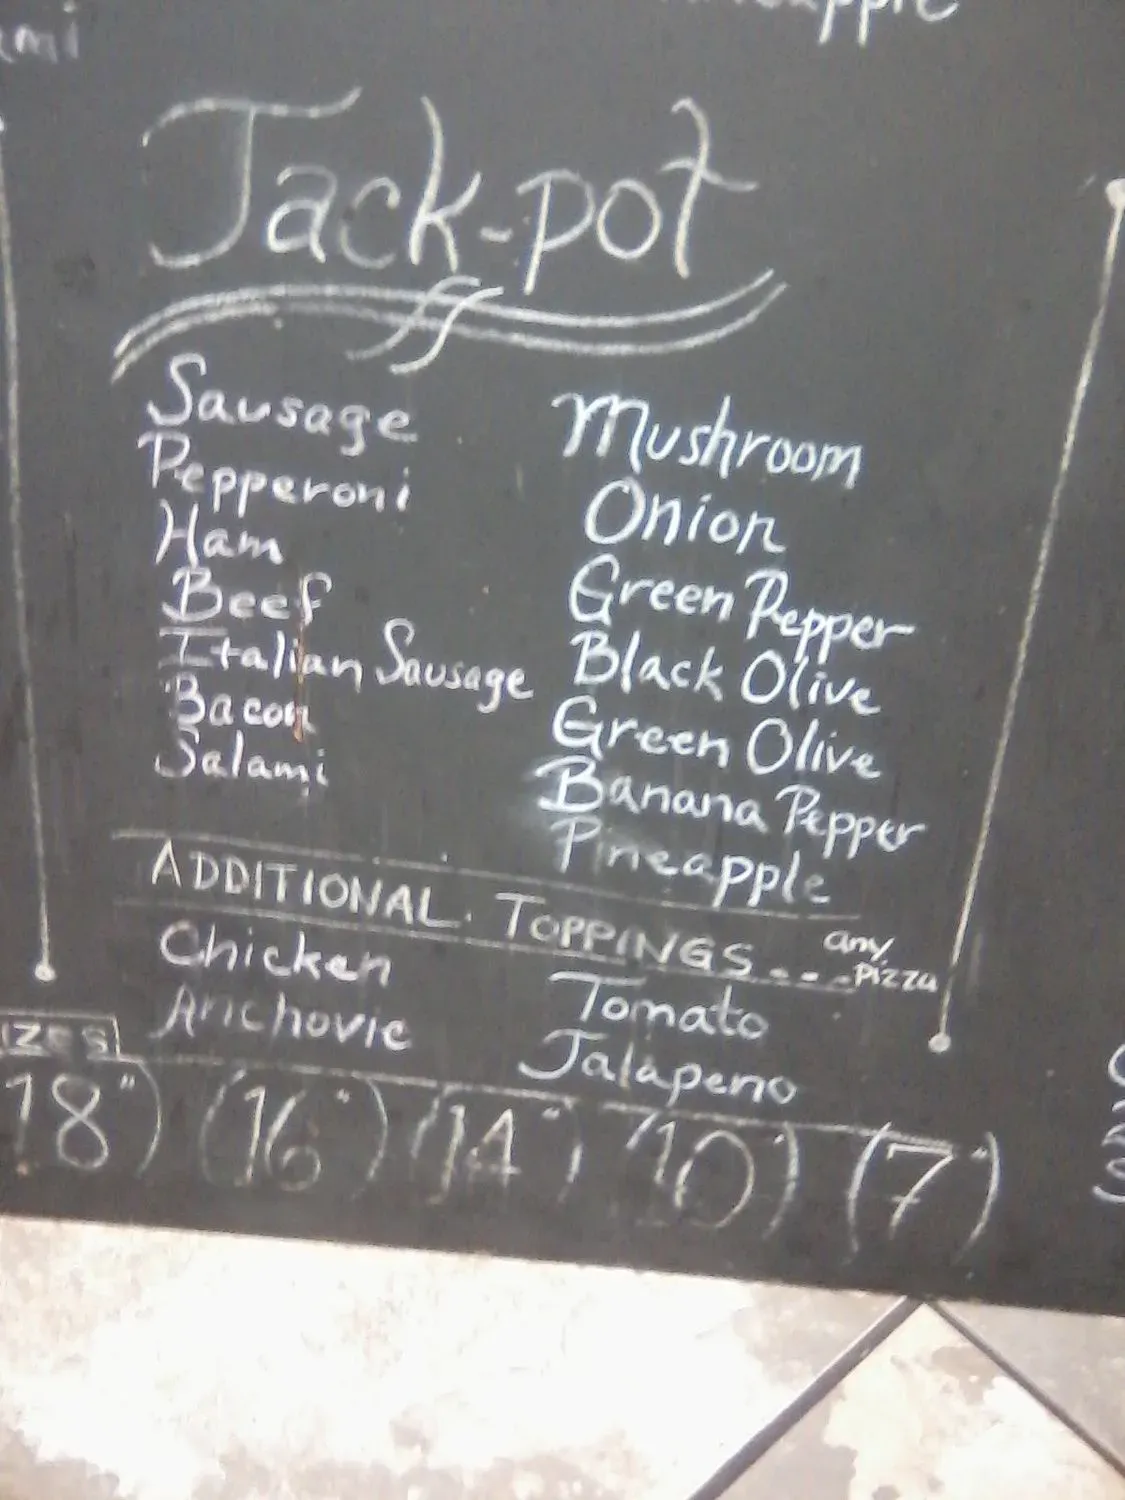 Jack-pot
Sausage
Pepperoni
Ham
Beef
Italian Sausage
Bacon
Salami
Mushroom
Onion
Green Pepper
Black Olive
Green Olive
Banana Pepper
Pineapple
ADDITIONAL TOPPINGS --- any pizza
Chicken
Anchovie
Tomato
Jalapeno
18") (16") (14") (10") (7")